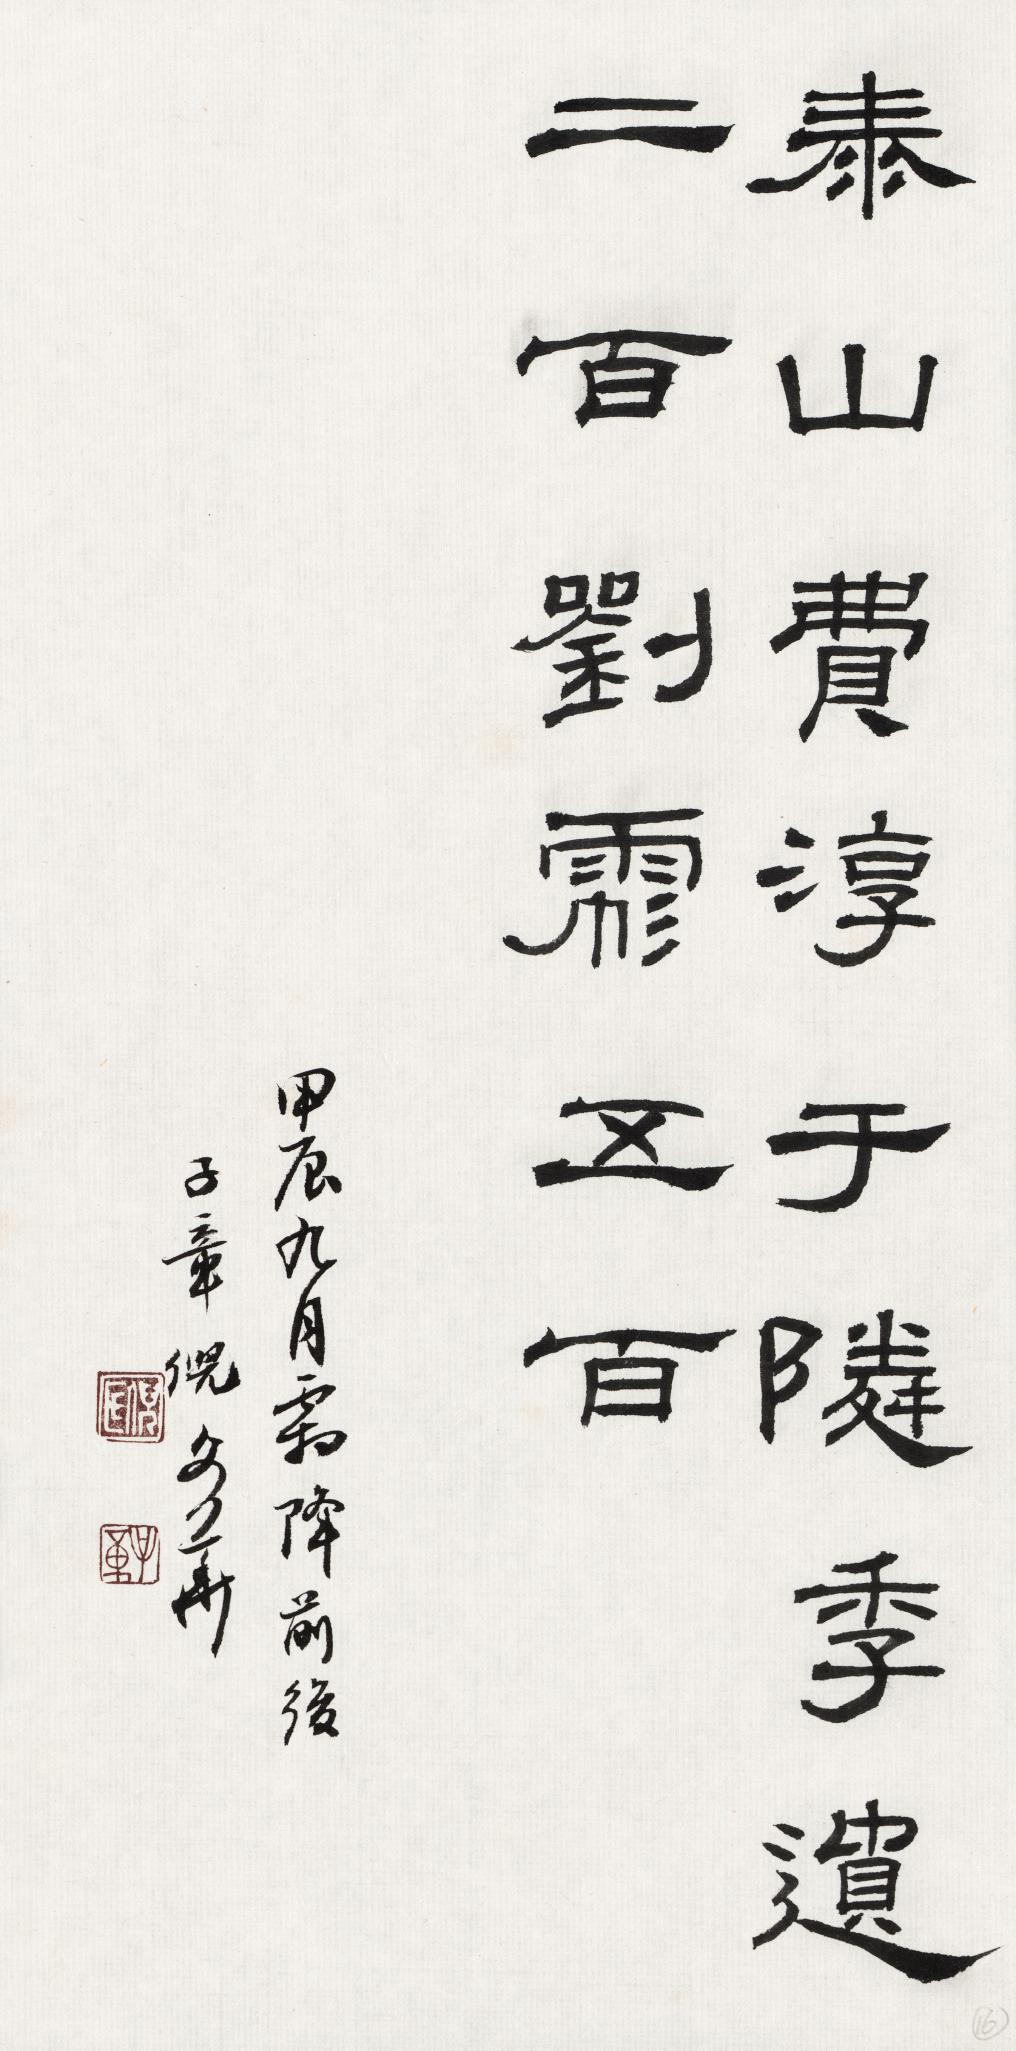 泰山費淳于隣季遺
二百劉彪五百
甲辰九月霜降前後
子章倪文華
子章
16